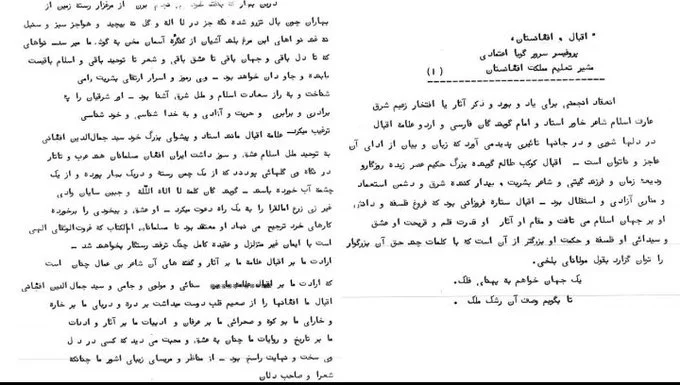 " اقبال و افغانستان "
پروفیسر سرور گویا اعتمادی
مشیر تعلیم مملکت افغانستان (١)
انعقاد انجمنی برای یاد و بود و ذکر آثار با افتخار زعیم شرق
عارف اسلام شاعر خاور استاد و امام گویند گان فارسی و اردو علامهٔ اقبال
در دلها شوری و در جانها تاثیری پدید می آورد که زبان و بیان از ادای آن
عاجز و ناتوان است ـ اقبال کوکب طالع گوینده بزرگ حکیم عصر زبده روزگار و
ودیعهٔ زمان و فرزند گیتی و شاعر بشریت، بیدار کننده شرق و دشمن استعمار
و منادی آزادی و استقلال بود ـ اقبال ستاره فروزانی بود که فروغ فلسفه و دانش
او بر جهان اسلام می تافت و مقام او آثار او قدرت قلم و قریحت او عشق
و شیدائی او فلسفه و حکمت او بزرگتر از آن است که با کلمات چند حق آن بزرگوار
را توان گزارد بقول مولانای بلخی .
یک جهان خواهم به پهنای فلک .
تا بگویم وصف آن رشک ملک .
درین بهار
بهاران چون بال تذرو شده نگه جز در لا لهٔ و گل نه پیچید و هواجز سبز و سنبل
نه غلتد نواهای این مرغ بلند آشیان از کنگرهٔ آسمان سخن به گوش ما میرسد نواهای
که تا دل باقی و جهان باقی تا عشق باقی و شعر تا توحید باقی و اسلام باقیست
مانده و جاودان خواهد بود ـ وی رموز و اسرار ارتقای بشریت رامی
شناخت و به راز سعادت اسلام و ملل شرق آشنا بود ـ او شرقیان را به
برادری و برابری و حریت و آزادی و به خدا شناسی و خود شناسی
ترغیب میکرد ـ علامهٔ اقبال مانند استاد و پیشوای بزرگ خود سید جمال الدین افغانی
به توحید ملل اسلام عشق و سوز داشت ایران افغان مسلمانان هند عرب و تاتار
در نگاه وی گلهائی بودند که از یک چمن رسته و دریک بهار بوده و از یک
چشمهٔ آب خورده باشند ـ گویند گان کلمهٔ لا الهٰ الّلهٔ و جبین سایان وادی
غیر ذی زرع امالقرا را به یک راه دعوت میکرد ـ او عشق و بیخودی را برخورده
کارهای خرد ترجیح می نهاد او معتقد بود تا مسلمانان به الکتاب که عروت الوثقای الهی
است با ایمان غیر متزلزل و عقیده کامل چنگ نزنند رستگار نخواهند شد ـ
ارادت ما بر اقبال علامهٔ ما بر آثار و گفته های آن شاعر بی همال چنان است
که ارادت ما بر سنائی و مولوی و جامی و سید جمال الدین افغانی
اقبال ما افغانها را از صمیم قلب دوست میداشت بر دره و دریای ما بر خاره
و خارای ما بر کوه و صحرائی ما بر عرفان و ادبیات ما بر آثار و ادبات
ما بر تاریخ و روایات ما چنان به عشق و محبت می دید که کسی در دل
وی سخت و نهایت راسخ بود ـ از مناظر و مرایای زیبای کشور ما چنانکهٔ
شعرا و صاحب دلان